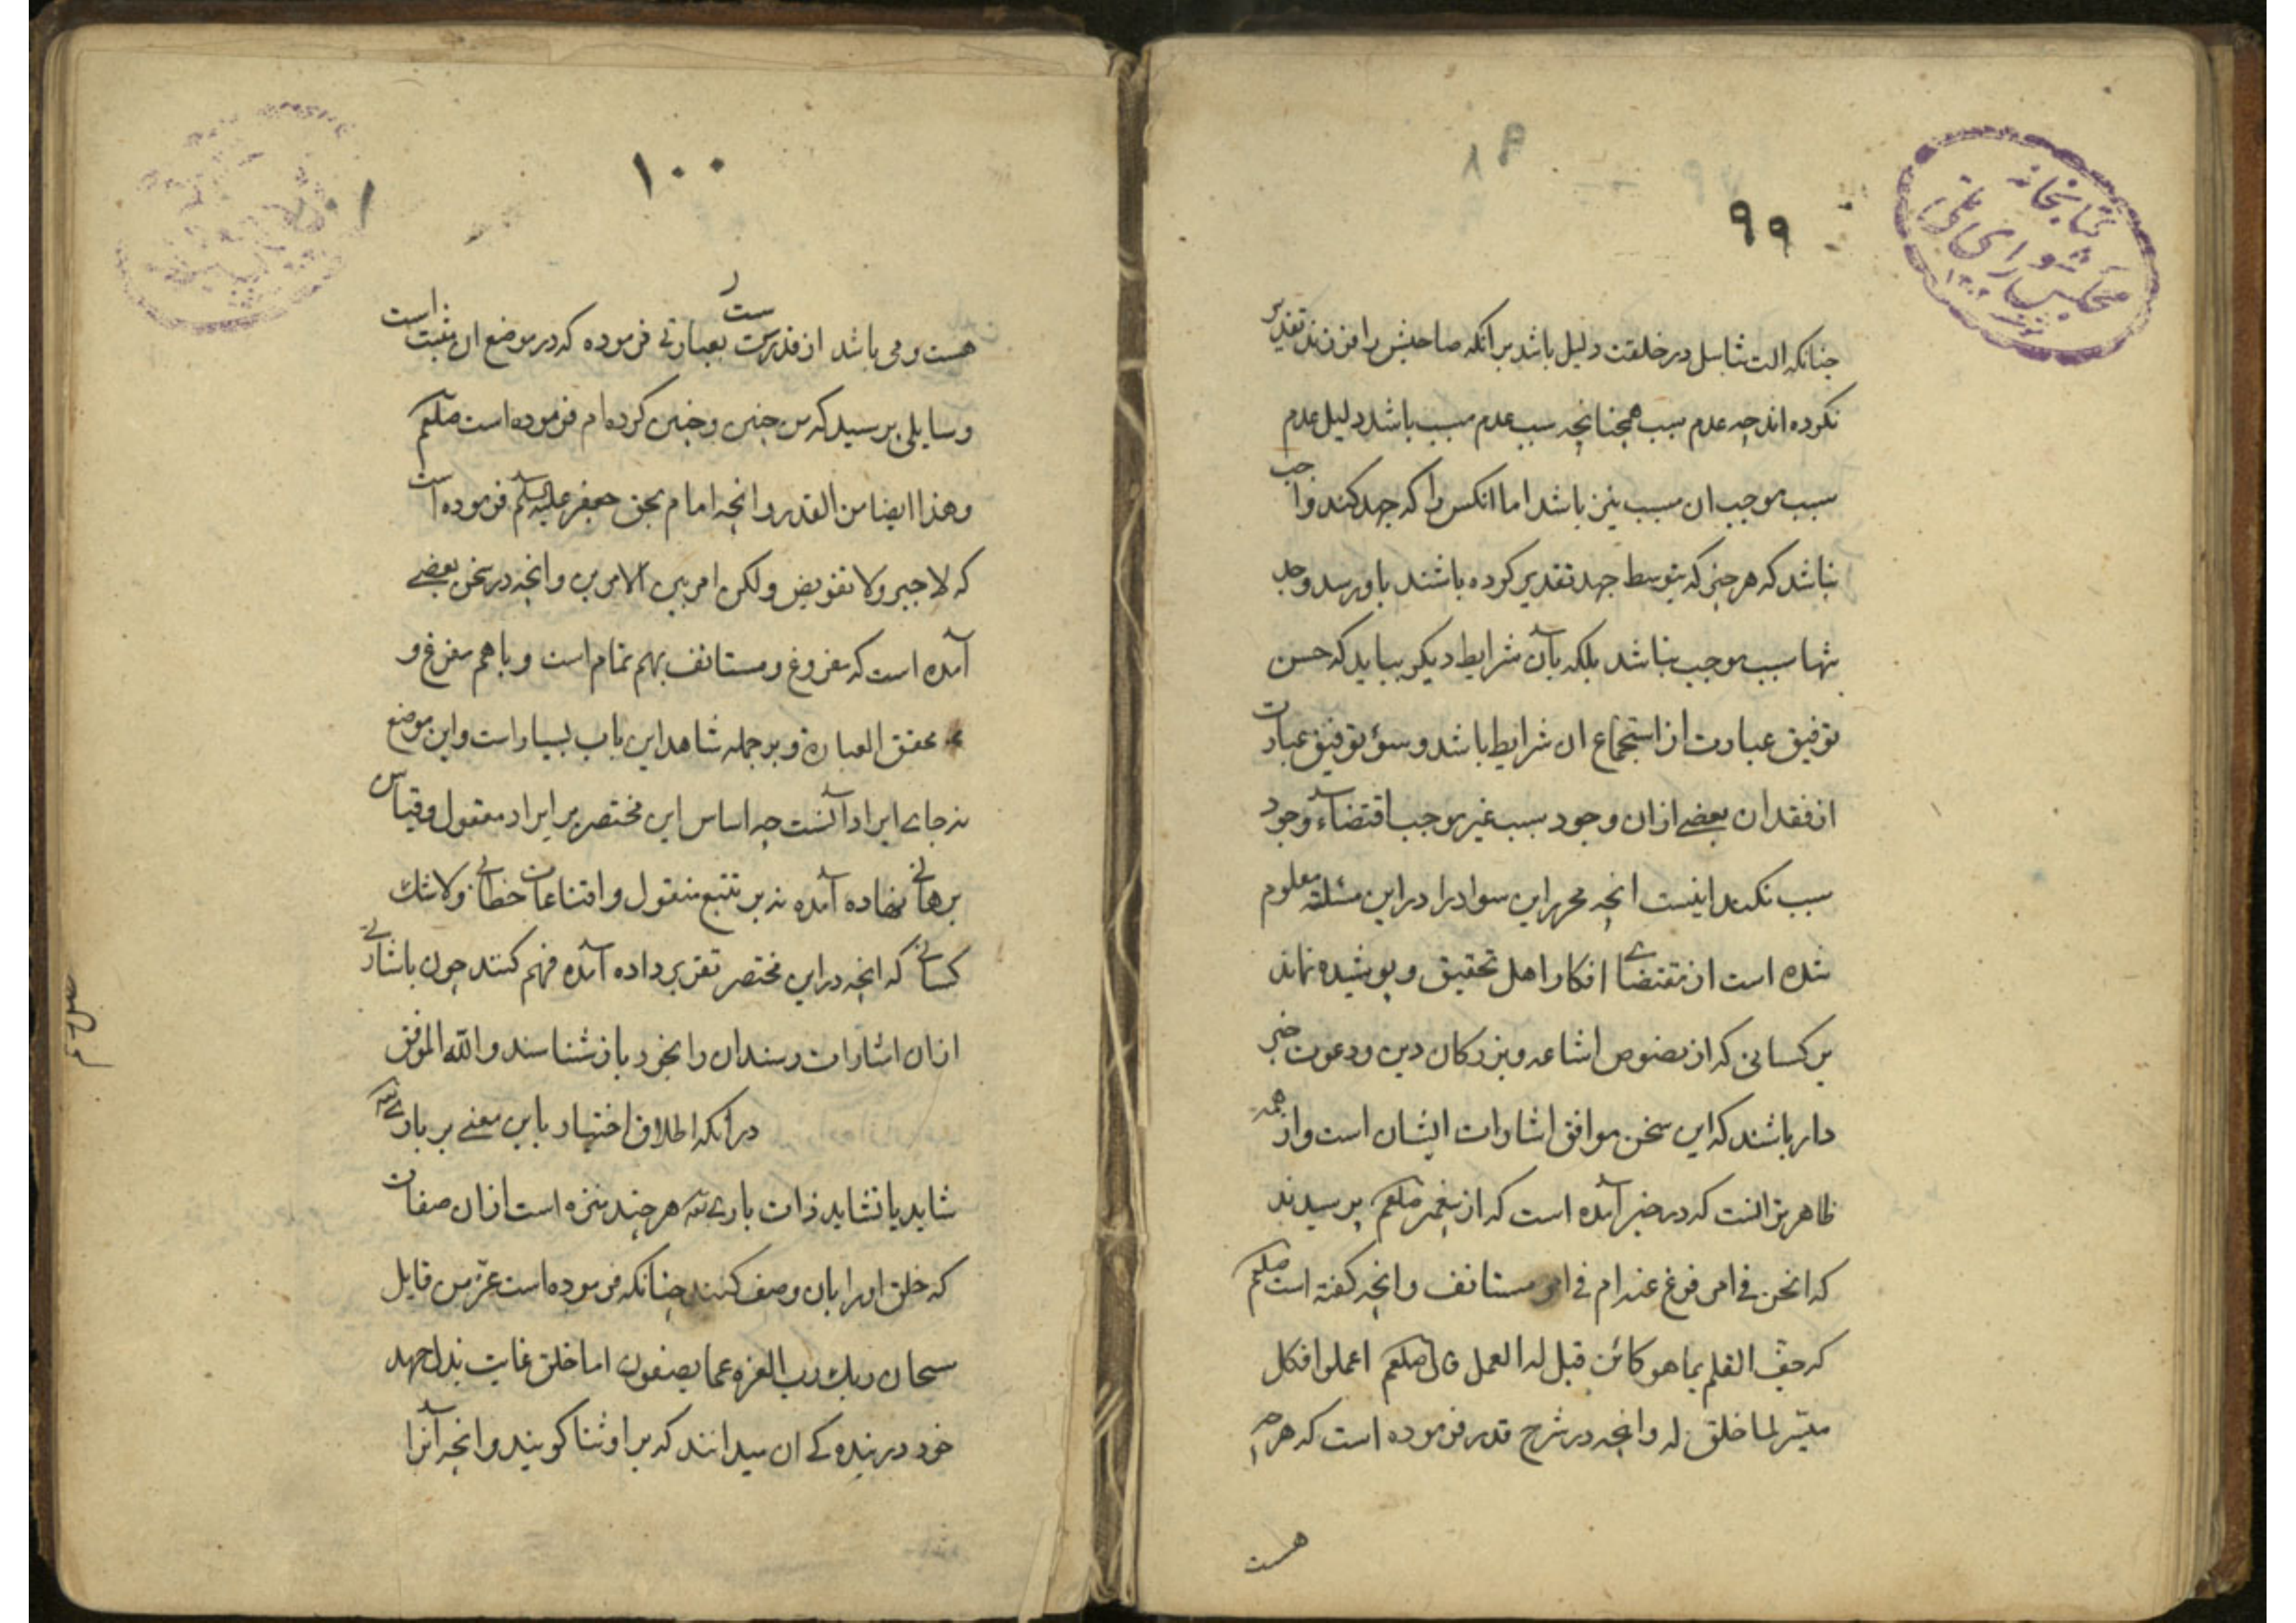 ۹۹
کتابخانه
مجلس شورای ملی
چنانکه الت تناسل در خلقت دلیل باشد بر انکه صاحبش را فرزند تقدیر
نکرده اند چه عدم سبب همچنانچه سبب عدم مسبب باشد دلیل عدم
سبب موجب ان مسبب نیز باشد اما انکس را که جهد کند واجب
نباشد که هر چیز که بتوسط جهد تقدیر کرده باشند باو رسد و جهد
تنها سبب موجب نباشد بلکه بآن شرایط دیکر بباید که حسن
توفیق عبارت از استجماع ان شرایط باشد و سوء توفیق عبارت
از فقدان بعضے ازان وجود سبب غیر موجب اقتضاء وجود
سبب نکند اینست انچه محرر این سواد را در این مسئله معلوم
شده است از مقتضاے افکار اهل تحقیق و پوشیده نماند
بر کسانی که از نصوص اشاعه و بزرکان دین و دعوت خبر
دار باشند که این سخن موافق اشارات ایشان است و از همه
ظاهر تر انست که در خبر آمده است که از پیغمبر صلعم پرسیدند
که انحن فی امر فرغ عنه ام فی امر مستانف و انچه کفته است صلعم
که جف القلم بما هو کائن قیل له العمل قال صلعم اعملوا فکل
میسّر لما خلق له و انچه در شرح قدر فرموده است که هر چه
هست
۱۰۰
هست و می باشد از قدرست بعبارتی فرموده که در موضع ان مثبت است
و سایلی پرسید که من چنین و چنین کرده ام فرموده است صلعم
و هذا ایضا من القدر و انچه امام بحق جعفر علیه السلم فرموده است
که لا جبر و لا تفویض و لکن امر بین الامرین و انچه در سخن بعضے
آمده است که مفروغ و مستانف بهم تمام است و با هم مفرغ و
محقق العبارة و بر جمله شاهد این باب بسیار است و این موضع
نه جاے ایراد آنست چه اساس این مختصر بر ایراد معقول و قیاس
برهانے نهاده آمده نه بر تتبع منقول و اقناعات خطابے و لا شک
کسانے که انچه در این مختصر تقریر داده آمده فهم کنند چون باشارتے
ازان اشارات رسند ان را بخود باز شناسند و الله الموفق
در آنکه اطلاق اختیار باین معنے بر بارے تعه
شاید یا نشاید ذات بارے تعه هر چند منزه است ازان صفات
که خلق او را بان وصف کنند چنانکه فرموده است عزّ من قایل
سبحان ربک رب العزه عما یصفون اما خلق غایت بذل جهد
خود در بنده کے ان میدانند که بر او ثنا کویند و انچه آنرا